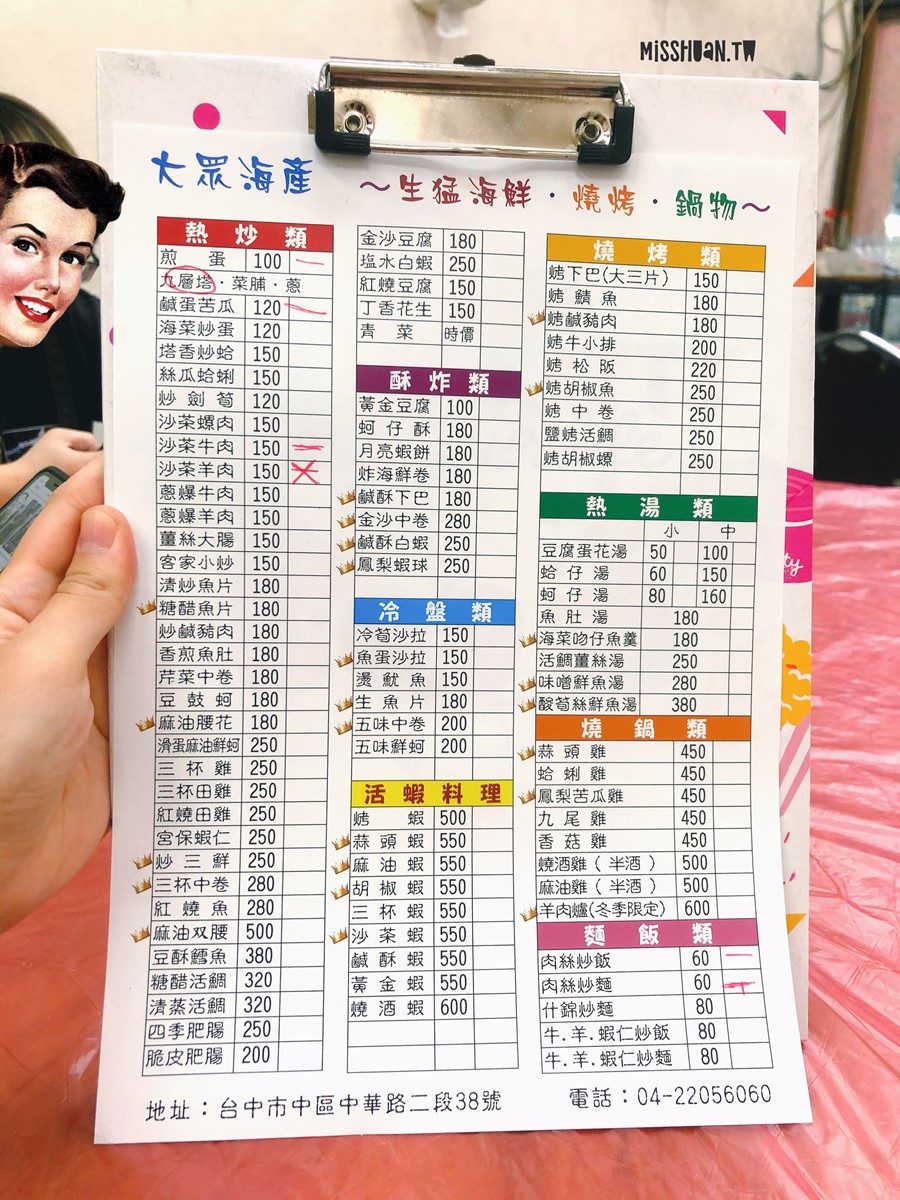 MiSSHUAN.TW
大眾海產
～生猛海鮮・燒烤・鍋物～
熱炒類
煎蛋 100
九層塔・菜脯・蔥
鹹蛋苦瓜 120
海菜炒蛋 120
塔香炒蛤 150
絲瓜蛤蜊 150
炒劍筍 120
沙茶螺肉 150
沙茶牛肉 150
沙茶羊肉 150
蔥爆牛肉 150
蔥爆羊肉 150
薑絲大腸 150
客家小炒 150
清炒魚片 180
糖醋魚片 180
炒鹹豬肉 180
香煎魚肚 180
芹菜中卷 180
豆鼓蚵 180
麻油腰花 180
滑蛋麻油鮮蚵 250
三杯雞 250
三杯田雞 250
紅燒田雞 250
宮保蝦仁 250
炒三鮮 250
三杯中卷 280
紅燒魚 280
麻油双腰 500
豆酥鱈魚 380
糖醋活鯛 320
清蒸活鯛 320
四季肥腸 250
脆皮肥腸 200
金沙豆腐 180
塩水白蝦 250
紅燒豆腐 150
丁香花生 150
青菜 時價
酥炸類
黃金豆腐 100
蚵仔酥 180
月亮蝦餅 180
炸海鮮卷 180
鹹酥下巴 180
金沙中卷 280
鹹酥白蝦 250
鳳梨蝦球 250
冷盤類
冷筍沙拉 150
魚蛋沙拉 150
燙魷魚 150
生魚片 180
五味中卷 200
五味鮮蚵 200
活蝦料理
烤蝦 500
蒜頭蝦 550
麻油蝦 550
胡椒蝦 550
三杯蝦 550
沙茶蝦 550
鹹酥蝦 550
黃金蝦 550
燒酒蝦 600
燒烤類
烤下巴(大三片) 150
烤鯖魚 180
烤鹹豬肉 180
烤牛小排 200
烤松阪 220
烤胡椒魚 250
烤中卷 250
鹽烤活鯛 250
烤胡椒螺 250
熱湯類
小 中
豆腐蛋花湯 50 100
蛤仔湯 60 150
蚵仔湯 80 160
魚肚湯 180
海菜吻仔魚羹 180
活鯛薑絲湯 250
味噌鮮魚湯 280
酸筍絲鮮魚湯 380
燒鍋類
蒜頭雞 450
蛤蜊雞 450
鳳梨苦瓜雞 450
九尾雞 450
香菇雞 450
燒酒雞（半酒） 500
麻油雞（半酒） 500
羊肉爐(冬季限定) 600
麵飯類
肉絲炒飯 60
肉絲炒麵 60
什錦炒麵 80
牛.羊.蝦仁炒飯 80
牛.羊.蝦仁炒麵 80
地址：台中市中區中華路二段38號
電話：04-22056060